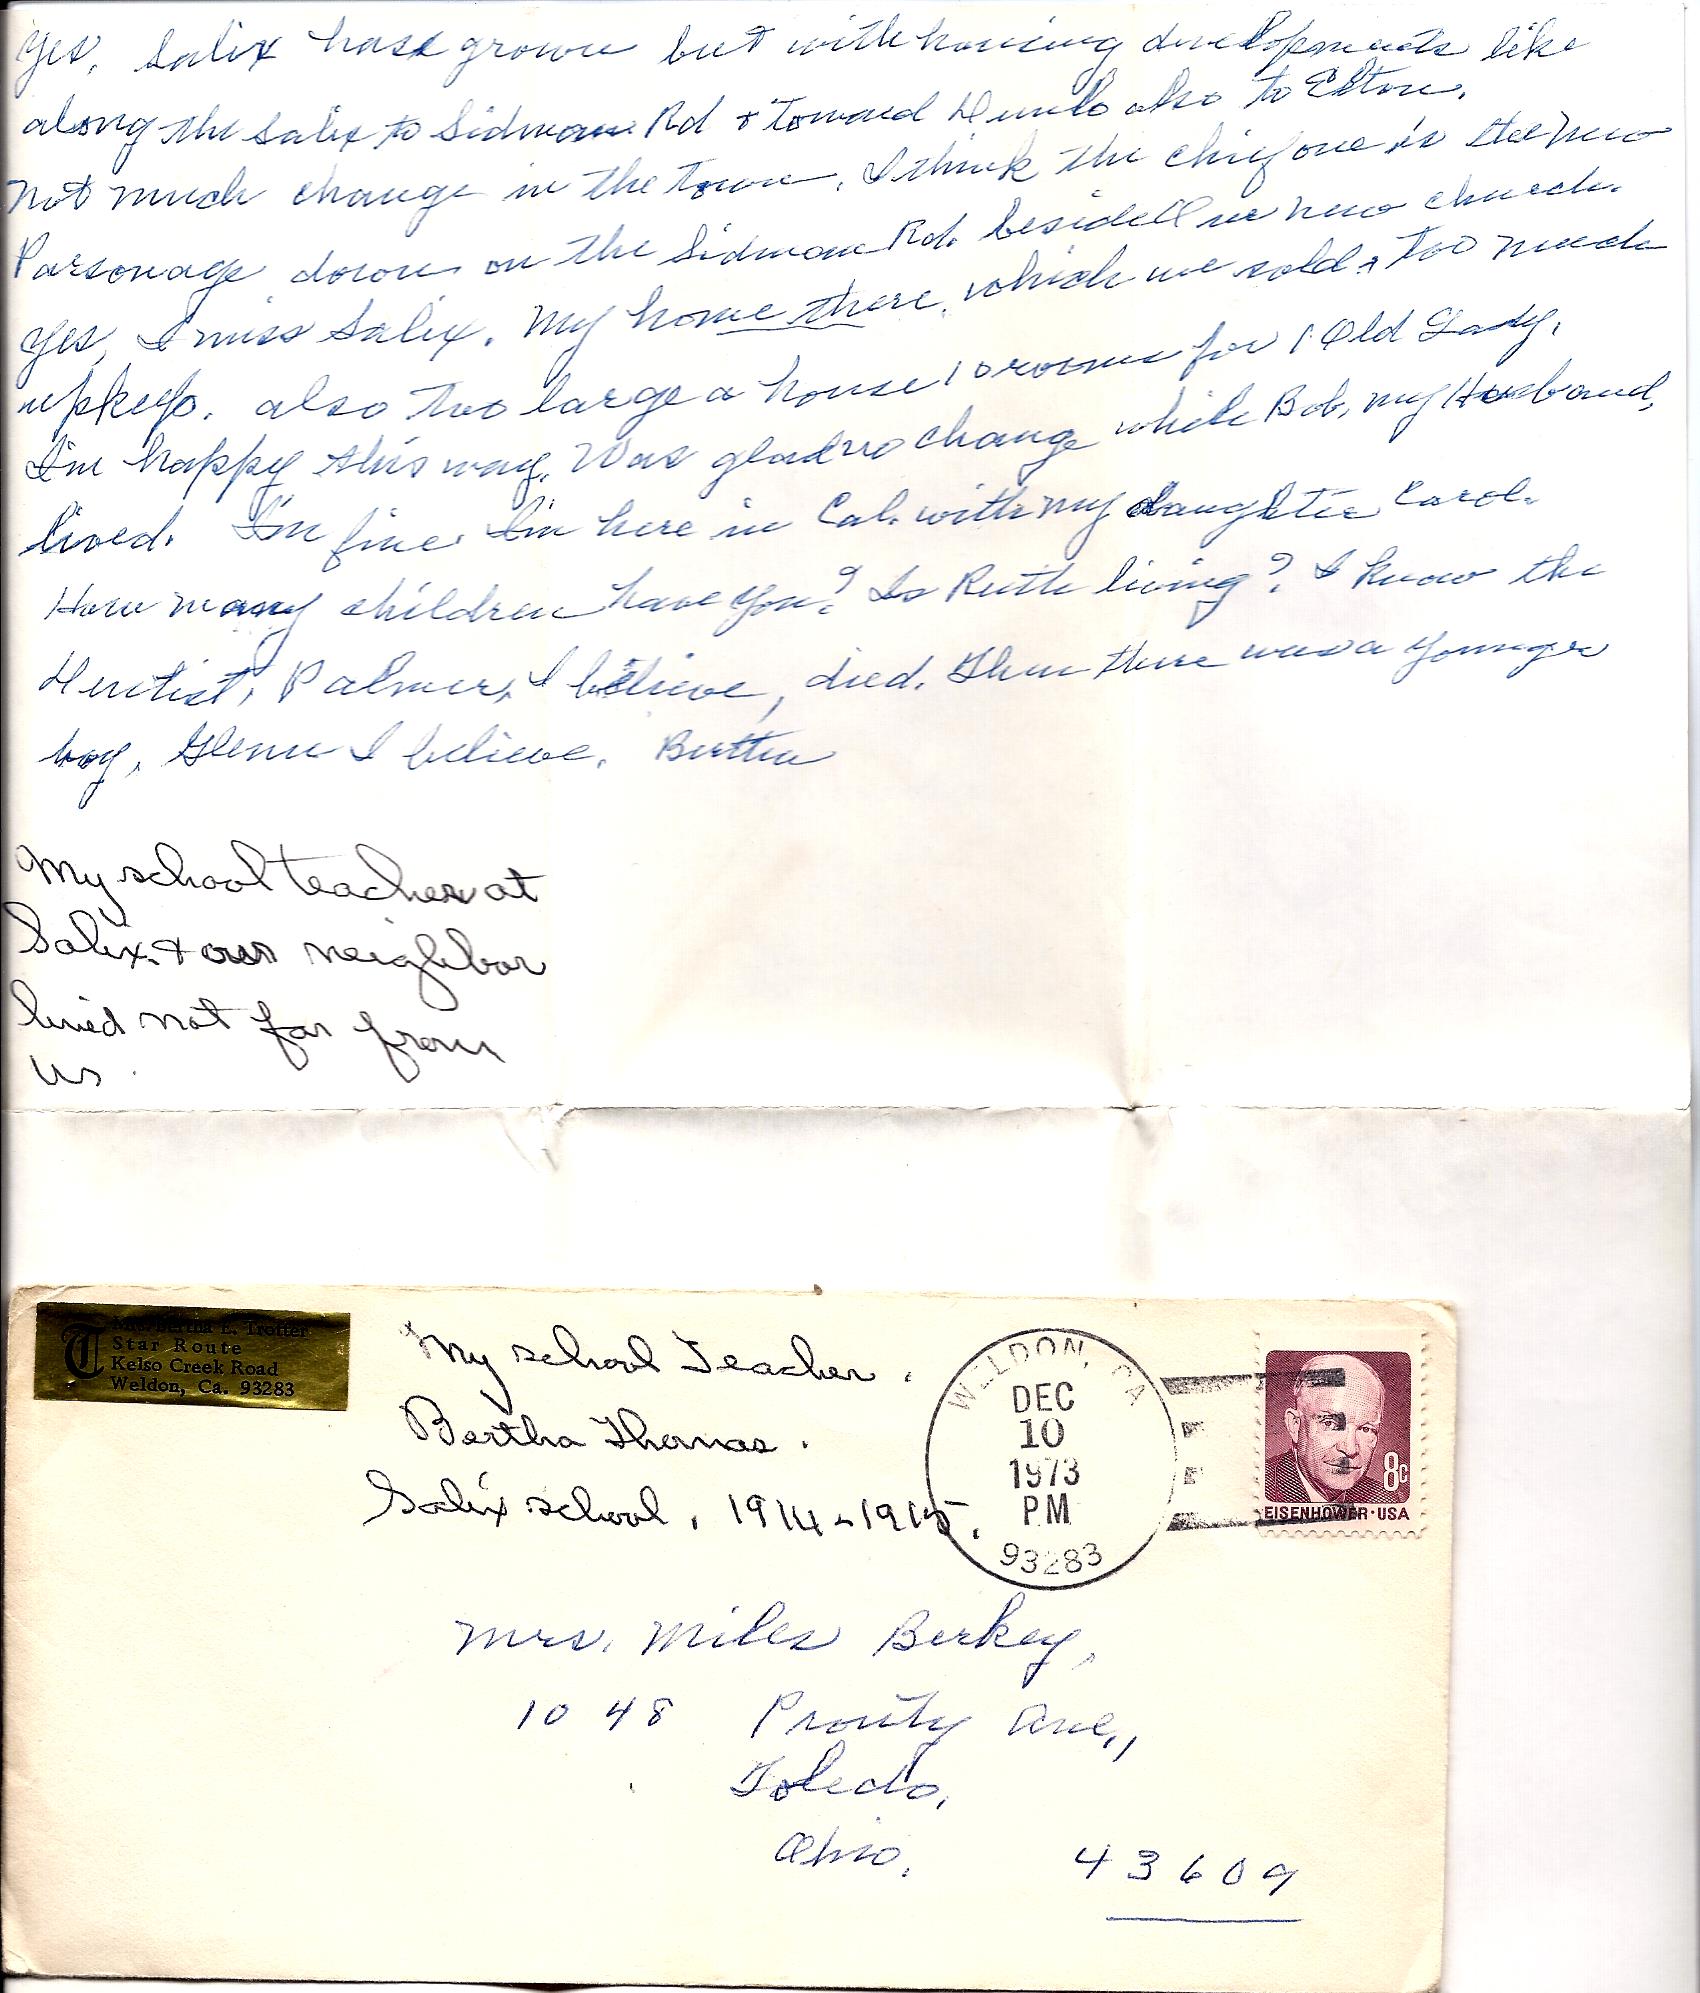 Yes, Salix has grown but with housing developments like
along the Salix to Sidman Rd & toward Dunlo also to Elton.
Not much change in the town. I think the chief one is the new
Parsonage down on the Sidman Rd. beside the new church.
Yes, I miss Salix. My home there, which we sold, too much
upkeep. also too large a house 10 rooms for 1 Old Lady.
I'm happy this way. Was glad no change while Bob, my Husband,
lived. I'm fine. I'm here in Cal. with my daughter Carol.
How many children have you? Is Ruth living? I know the
Dentist, Palmer, I believe, died. Then there was a younger
boy, Glenn I believe. Bertha
My school teacher at
Salix. & our neighbor
lived not far from
us.
T
Mrs. Bertha E. Trotter
Star Route
Kelso Creek Road
Weldon, Ca. 93283
My school Teacher.
Bertha Thomas.
Salix school, 1914-1915.
WELDON, CA
DEC
10
1973
PM
93283
8c
EISENHOWER·USA
Mrs. Miles Berkey,
1048 Prouty Ave.,
Toledo,
Ohio. 43609